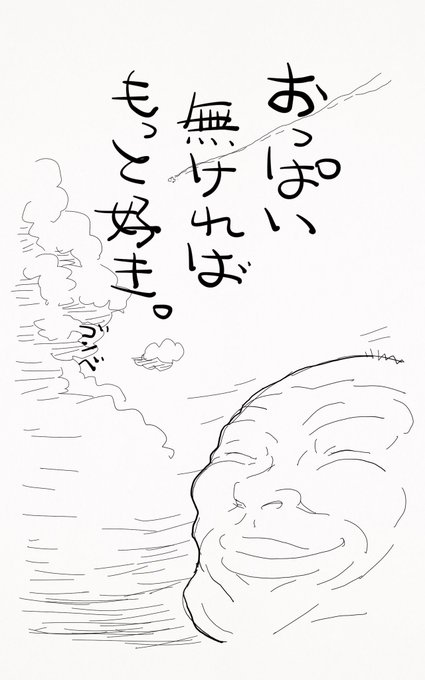 おっぱい
無ければ
もっと好き。